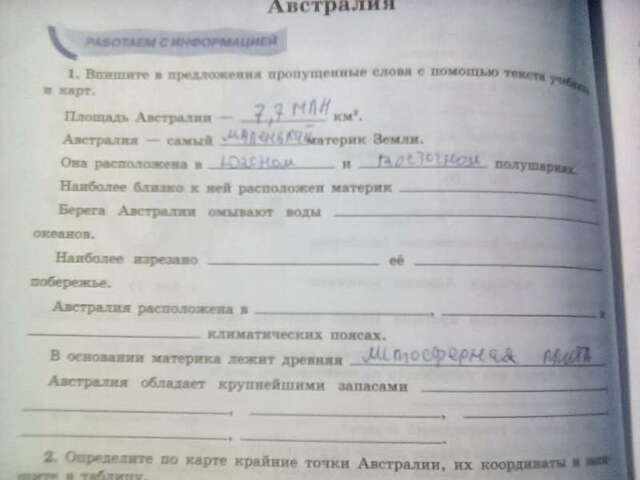 Австралия
РАБОТАЕМ С ИНФОРМАЦИЕЙ
1. Впишите в предложения пропущенные слова с помощью текста учебника
и карт.
Площадь Австралии — 7,7 МЛН км².
Австралия — самый маленький материк Земли.
Она расположена в Южном и восточном полушариях.
Наиболее близко к ней расположен материк
Берега Австралии омывают воды
океанов.
Наиболее изрезано её
побережье.
Австралия расположена в , и
климатических поясах.
В основании материка лежит древняя литосферная плита
Австралия обладает крупнейшими запасами
, , ,
, .
2. Определите по карте крайние точки Австралии, их координаты и запи-
шите в таблицу.